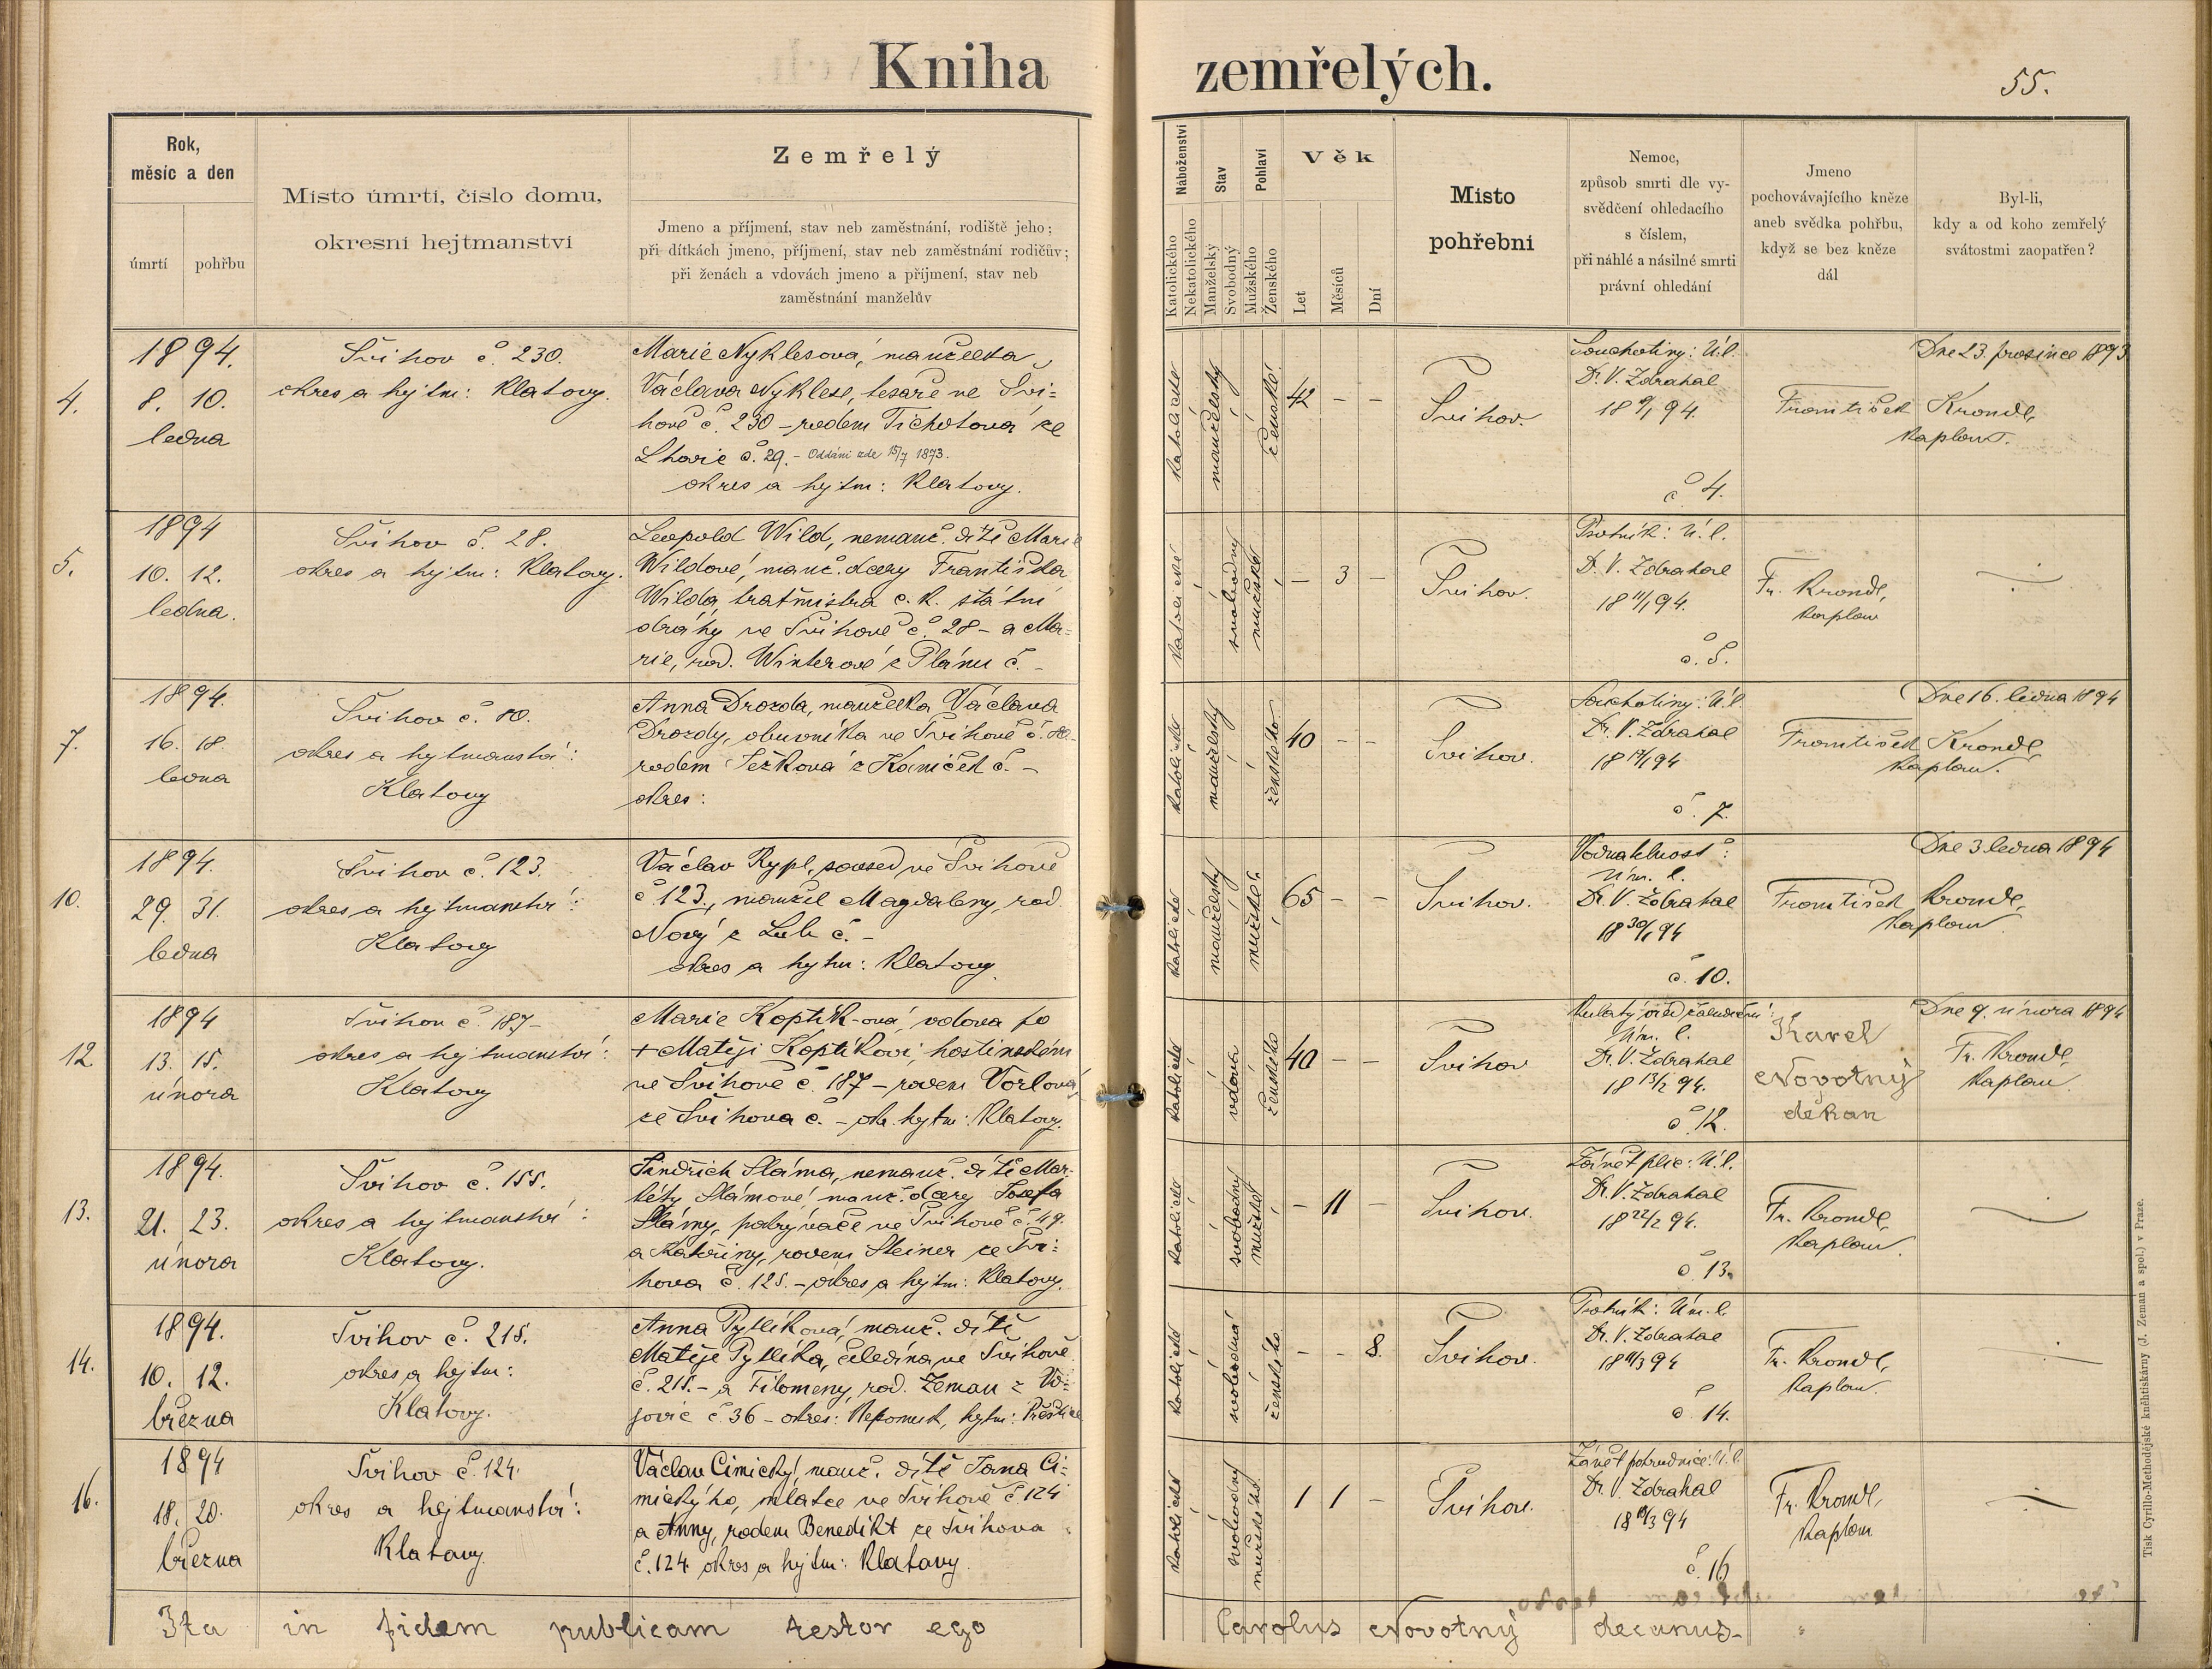 Kniha zemřelých.
55.
Rok,
měsíc a den
úmrtí pohřbu
Místo úmrtí, číslo domu,
okresní hejtmanství
Zemřelý
Jmeno a příjmení, stav neb zaměstnání, rodiště jeho;
při dítkách jmeno, příjmení, stav neb zaměstnání rodičův;
při ženách a vdovách jmeno a příjmení, stav neb
zaměstnání manželův
Náboženství
Katolického
Nekatolického
Stav
Manželský
Svobodný
Pohlaví
Mužského
Ženského
Věk
Let
Měsíců
Dní
Místo
pohřební
Nemoc,
způsob smrti dle vy-
svědčení ohledacího
s číslem,
při náhlé a násilné smrti
právní ohledání
Jmeno
pochovávajícího kněze
aneb svědka pohřbu,
když se bez kněze
dál
Byl-li,
kdy a od koho zemřelý
svátostmi zaopatřen?
4.
1894.
8. 10.
ledna
Švihov č. 230.
okres a hejtm: Klatovy.
Marie Nyklesová, manželka
Václava Nyklese, tesaře ve Švi=
hově č. 230 – rodem Tichotová ze
Lhovic č. 29. – Oddáni zde 15/7 1873.
okres a hejtm: Klatovy.
katolické
manželský
ženské
42 – –
Švihov.
Souchotiny: Ú.l.
Dr. V. Zdrahal
18 9/1 94.
č 4.
František Krondl,
kaplan.
Dne 23. prosince 1893
5.
1894
10. 12.
ledna.
Švihov č. 28.
okres a hejtm: Klatovy.
Leopold Wild, nemanž. dítě Marie
Wildové, manž. dcery Františka
Wilda, tratmistra c. k. státní
dráhy ve Švihově č. 28 – a Ma=
rie, rod. Winterové z Plánu č. –
katolické
svobodný
mužské
– 3 –
Švihov.
Psotník: Ú.l.
Dr. V. Zdrahal
18 11/1 94.
č. 5.
Fr. Krondl,
kaplan
7.
1894.
16. 18.
ledna
Švihov č. 80.
okres a hejtmanství:
Klatovy
Anna Drozda, manželka Václava
Drozdy, obuvníka ve Švihově č. 80.–
rodem Ježková z Kamiček č. –
okres:
katolické
manželský
ženského
40 – –
Švihov.
Souchotiny: Ú.l.
Dr. V. Zdrahal
18 17/1 94
č. 7.
František Krondl,
kaplan.
Dne 16. ledna 1894
10.
1894.
29. 31.
ledna
Švihov č. 123.
okres a hejtmanství:
Klatovy
Václav Rypl, soused ve Švihově
č 123., manžel Magdaleny, rod.
Nový z Lub č. –
okres a hejtm: Klatovy.
katolické
manželský
mužské.
65 – –
Švihov.
Vodnatelnost:
Úm. l.
Dr. V. Zdrahal
18 30/1 94
č. 10.
František Krondl,
kaplan
Dne 3. ledna 1894
12
1894
13. 15.
února
Švihov č. 187–
okres a hejtmanství:
Klatovy
Marie Koptík-ová, vdova po
+ Matěji Koptíkovi, hostinském
ve Švihově č. 187 – rodem Vorlová
ze Švihova č. – okr. hejtm: Klatovy.
katolické
vdova
ženského
40 – –
Švihov
Kulatý vřed žaludeční:
Úm. l.
Dr. V. Zdrahal
18 13/2 94.
č. 12.
Karel
Novotný
děkan
Dne 9. února 1894
Fr. Krondl,
kaplan.
13.
1894.
21. 23.
února
Švihov č. 155.
okres a hejtmanství:
Klatovy.
Jindřich Sláma, nemanž. dítě Mar=
kéty Slámové, manž. dcery Josefa
Slámy, pokrývače ve Švihově č. 49.
a Kateřiny, rodem Steiner ze Švi=
hova č. 125. – okres a hejtm: Klatovy.
katolické
svobodný
mužské
– 11 –
Švihov.
Zánět plic: Ú.l.
Dr. V. Zdrahal
18 22/2 94.
č. 13.
Fr. Krondl,
kaplan.
14.
1894.
10. 12.
března
Švihov č. 215.
okres a hejtm:
Klatovy.
Anna Pytlíková, manž. dítě
Matěje Pytlíka, čeledína ve Švihově
č. 215. – a Filomeny, rod. Zeman z Vo=
jovic č. 36 – okres: Nepomuk, hejtm: Přeštice
katolické
svobodná
ženského
– – 8.
Švihov.
Psotník: Úm. l.
Dr. V. Zdrahal
18 11/3 94
č 14.
Fr. Krondl,
kaplan.
16.
1894
18. 20.
března
Švihov č. 124.
okres a hejtmanství:
Klatovy
Václav Cimický, manž. dítě Jana Ci=
mického, mlatce ve Švihově č. 124
a Anny, rodem Benedikt ze Švihova
č. 124 okres a hejtm: Klatovy.
katolické
svobodný
mužského.
1 1 –
Švihov.
Zánět pohrudnice: Ú.l.
Dr. V. Zdrahal
18 19/3 94
č. 16
Fr. Krondl,
kaplan
Ita in fidem publicam testor ego Carolus Novotný decanus.
Tisk Cyrillo-Methodějské knihtiskárny (J. Zeman a spol.) v Praze.